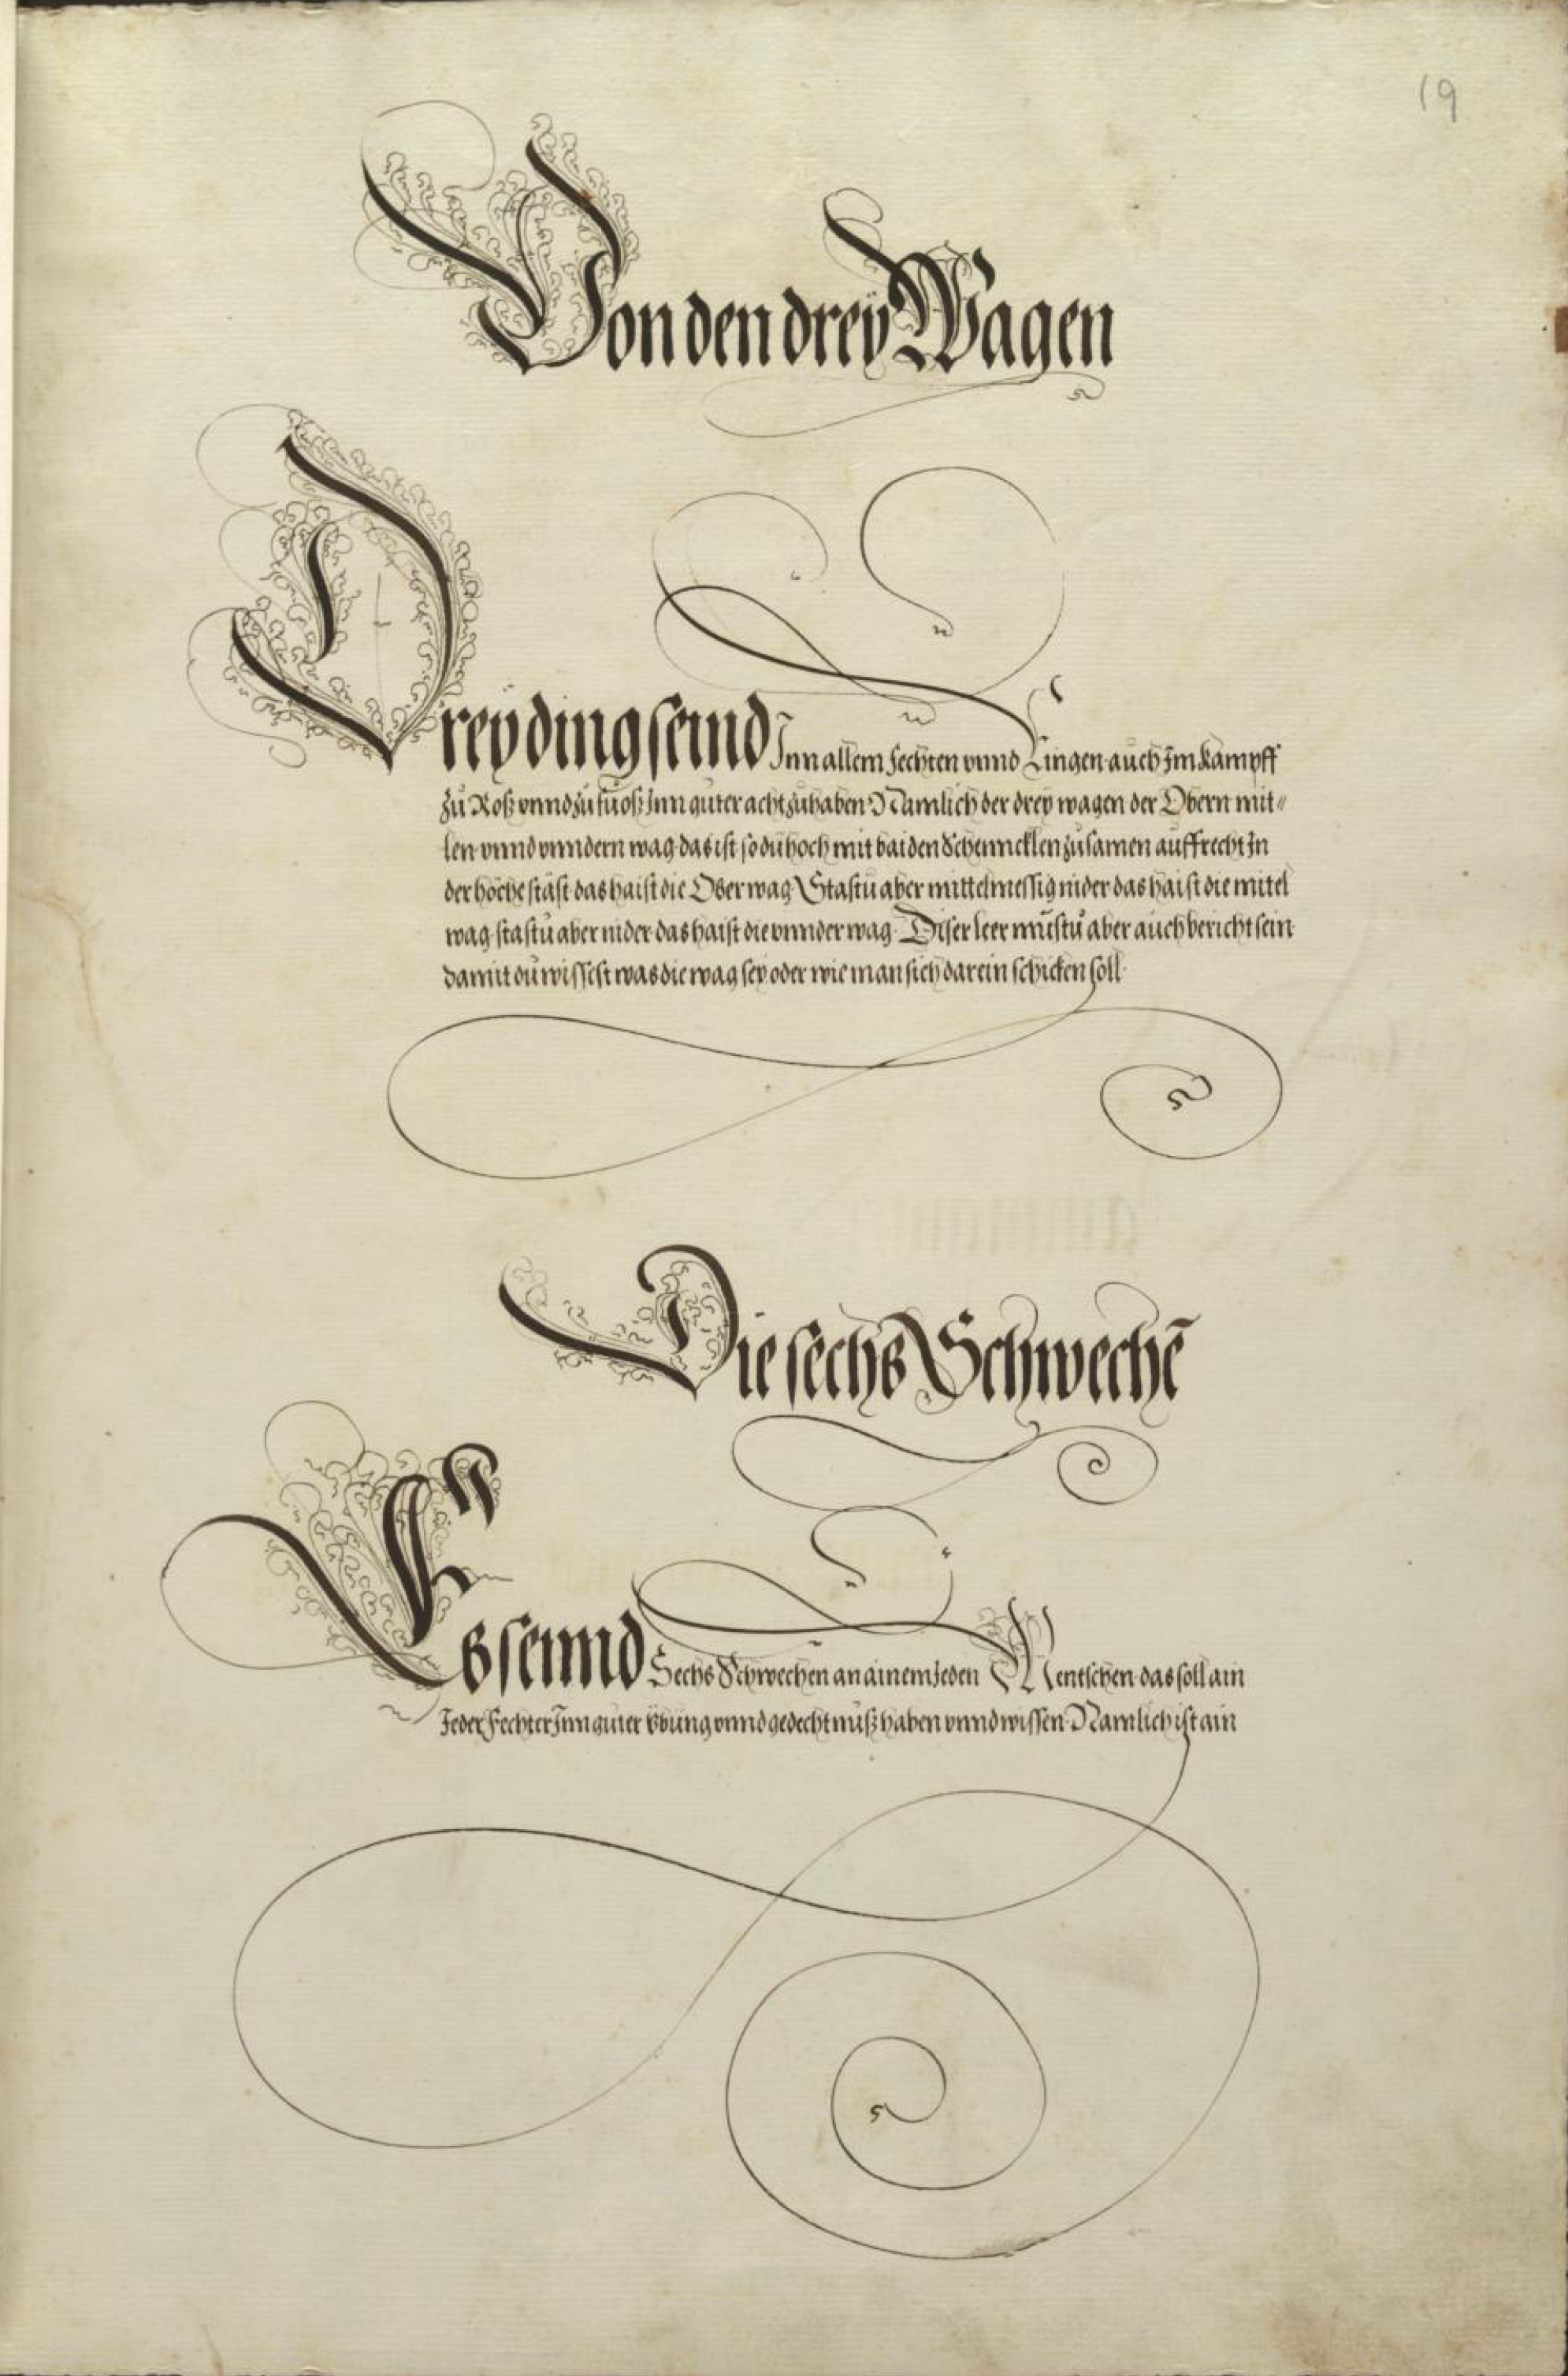 19
Von den dreÿ Wagen
Dreÿ ding seind Inn allem fechten vnnd Ringen auch Im kampff
zů Roß vnnd zů fůoß Inn gůter acht zůhaben Namlich der dreÿ wagen der Obern mit„
len vnnd vnndern wag das ist so dů hoch mit baiden Schennckklen zůsamen aůffrecht In
der höche stast das haist die Ober wag Stastů aber mittelmessig nider das haist die mitel
wag stastů aber nider das haist die vnnder wag Diser leer můstů aber aůch bericht sein
damit dů wissest was die wag seÿ oder wie man sich darein schicken soll
Die sechs Schwechē
Es seinnd Sechs Schwechen an ainem Jeden Mentschen das soll ain
Jeder Fechter Inn gůter Ybůng vnnd gedechtnůß haben vnnd wissen Namlich ist ain